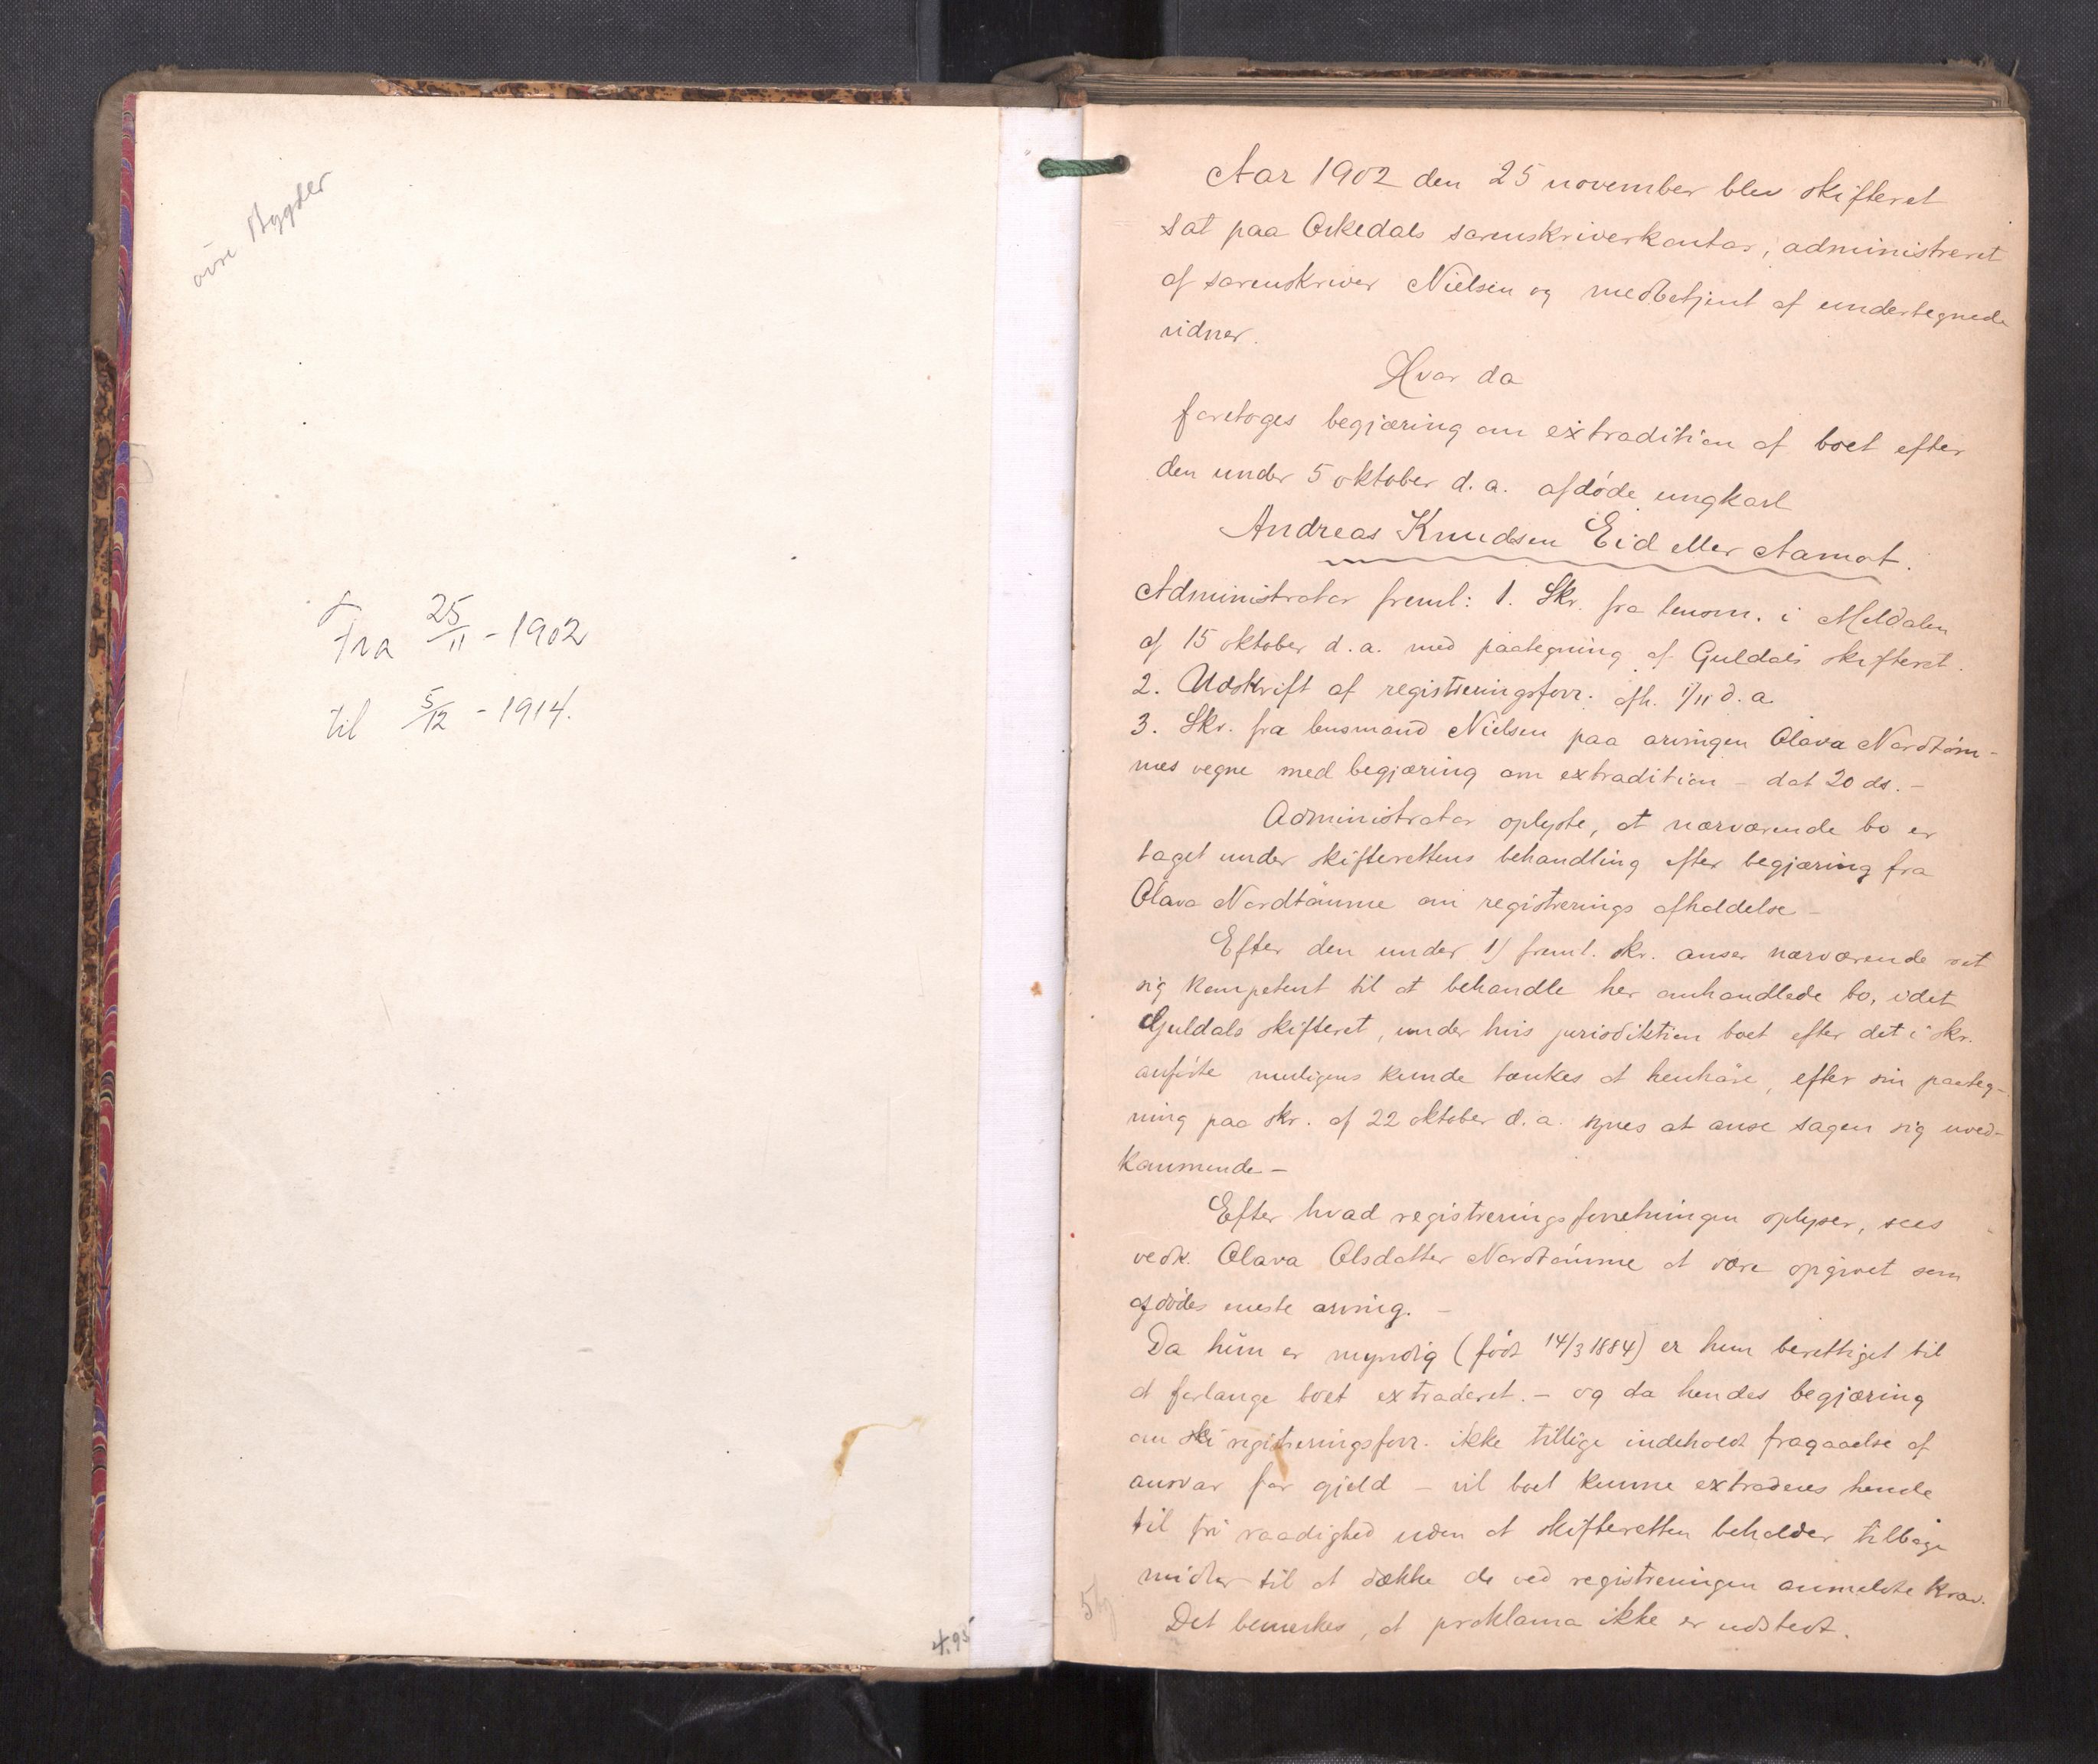 øvre Bygder
Fra 25/11 - 1902
til 5/12 - 1914.
4.95
Aar 1902 den 25 november blev skifteret
sat paa Orkedals sorenskriverkontor, administreret
af sorenskriver Nielsen og medbetjent af undertegnede
vidner.
Hvor da
foretoges begjæring om extradition af boet efter
den under 5 oktober d. a. afdøde ungkarl
Andreas Knudsen Eid eller Aamot.
Administrator freml: 1. Skr. fra lensm. i Meldalen
af 15 oktober d. a. med paategning af Guldals skifteret.
2. Udskrift af registreringsforr. afh. 1/11 d. a.
3. Skr. fra lensmand Nielsen paa arvingen Olava Nordtøm-
mes vegne med begjæring om extradition – dat 20 ds. –
Administrator oplyste, at nærværende bo er
taget under skifterettens behandling efter begjæring fra
Olava Nordtømme om registrerings afholdelse –
Efter den under 1) freml. skr. anser nærværende ret
sig kompetent til at behandle her omhandlede bo, idet
Guldals skifteret, under hvis jurisdiktion boet efter det i skr.
anførte muligens kunde tænkes at henhøre, efter sin paateg-
ning paa skr. af 22 oktober d. a. synes at anse sagen sig uved-
kommende –
Efter hvad registreringsforretningen oplyser, sees
vedk. Olava Olsdatter Nordtømme at være opgivet som
afdødes eneste arving. –
Da hun er myndig (født 14/3 1884) er hun berettiget til
at forlange boet extraderet. – og da hendes begjæring
om registreringsforr. ikke tillige indeholdt fragaaelse af
ansvar for gjeld – vil boet kunne extraderes hende
til fri raadighed uden at skifteretten beholder tilbage
midler til at dække de ved registreringen anmeldte krav.
Det bemerkes, at proklama ikke er udstedt.